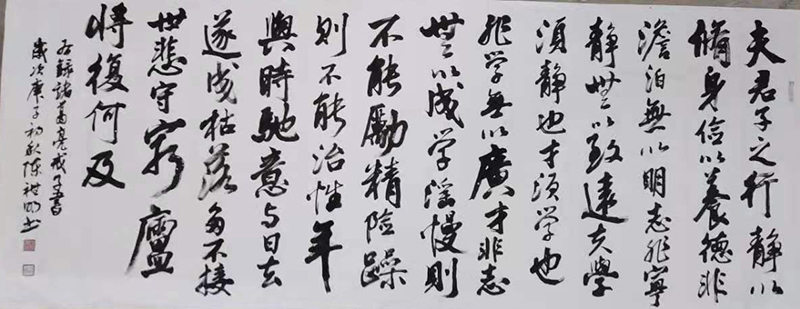 夫君子之行靜以
脩身俭以養德非
澹泊無以明志非寧
靜無以致遠夫學
須靜也才须学也
非学無以廣才非志
無以成学淫慢則
不能勵精险躁
則不能治性年
與時馳意与日去
遂成枯落多不接
世悲守窮廬
將復何及
右録諸葛亮戒子書
歲次庚子初秋陳